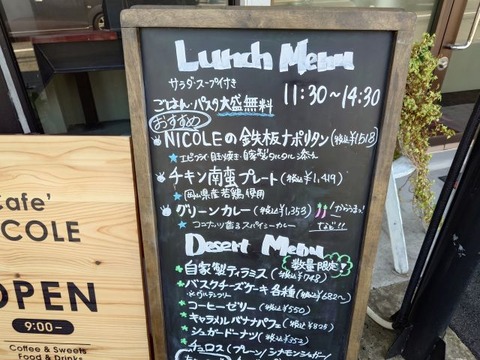 Lunch Menu
サラダ・スープ付き
ごはん・パスタ大盛無料
11:30~14:30
おすすめ
NICOLEの鉄板ナポリタン(税込¥1518)
★エビフライ・目玉焼き・自家製タルタル添え
チキン南蛮プレート(税込¥1,419)
★岡山県産若鶏使用
グリーンカレー(税込¥1,353)
★ココナッツ香るスパイシーカレー
Desert Menu
数量限定!
自家製ティラミス(税込¥748)
バスクチーズケーキ各種(税込¥682~)
コーヒーゼリー(税込¥550)
キャラメルバナナパフェ(税込¥808)
シュガードーナツ(税込¥352)
チュロス(プレーン/シナモンシュガー/
Cafe'
NICOLE
OPEN
9:00-
Coffee & Sweets
Food & Drinks